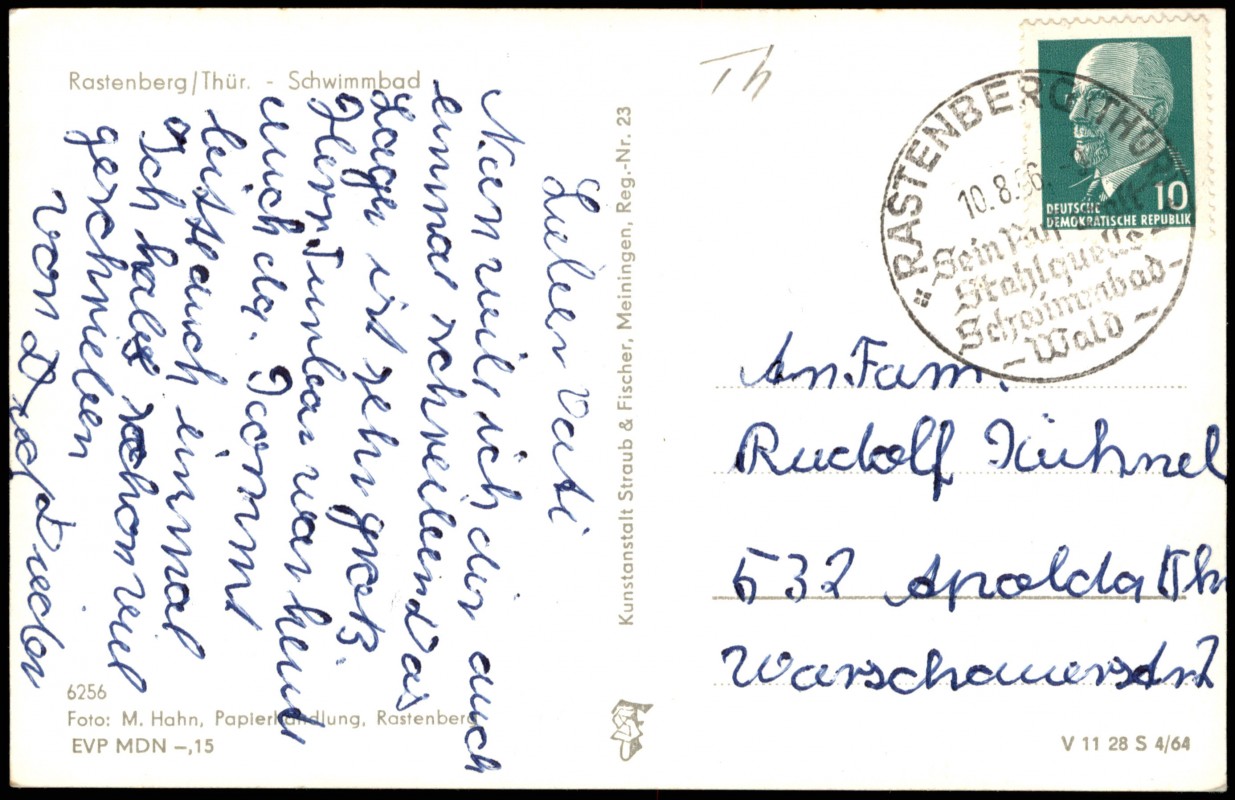 Rastenberg/Thür. - Schwimmbad
Lieber Vati
Nun will ich dir auch
einmal schreiben Das
Lager ist sehr groß.
Herr Tunlar war heute
auch da. Kommt
bitte auch einmal
Ich habe schon viel
geschrieben
von Dieter
6256
Foto: M. Hahn, Papierhandlung, Rastenberg
EVP MDN –,15
Kunstanstalt Straub & Fischer, Meiningen, Reg.-Nr. 23
Th
RASTENBERG (THÜR)
10.8.66
Stahlquelle
Schwimmbad-
– Wald –
10
DEUTSCHE
DEMOKRATISCHE REPUBLIK
An Fam.
Rudolf Kühnel
532 Apolda Thr
Warschauerstr 2
V 11 28 S 4/64